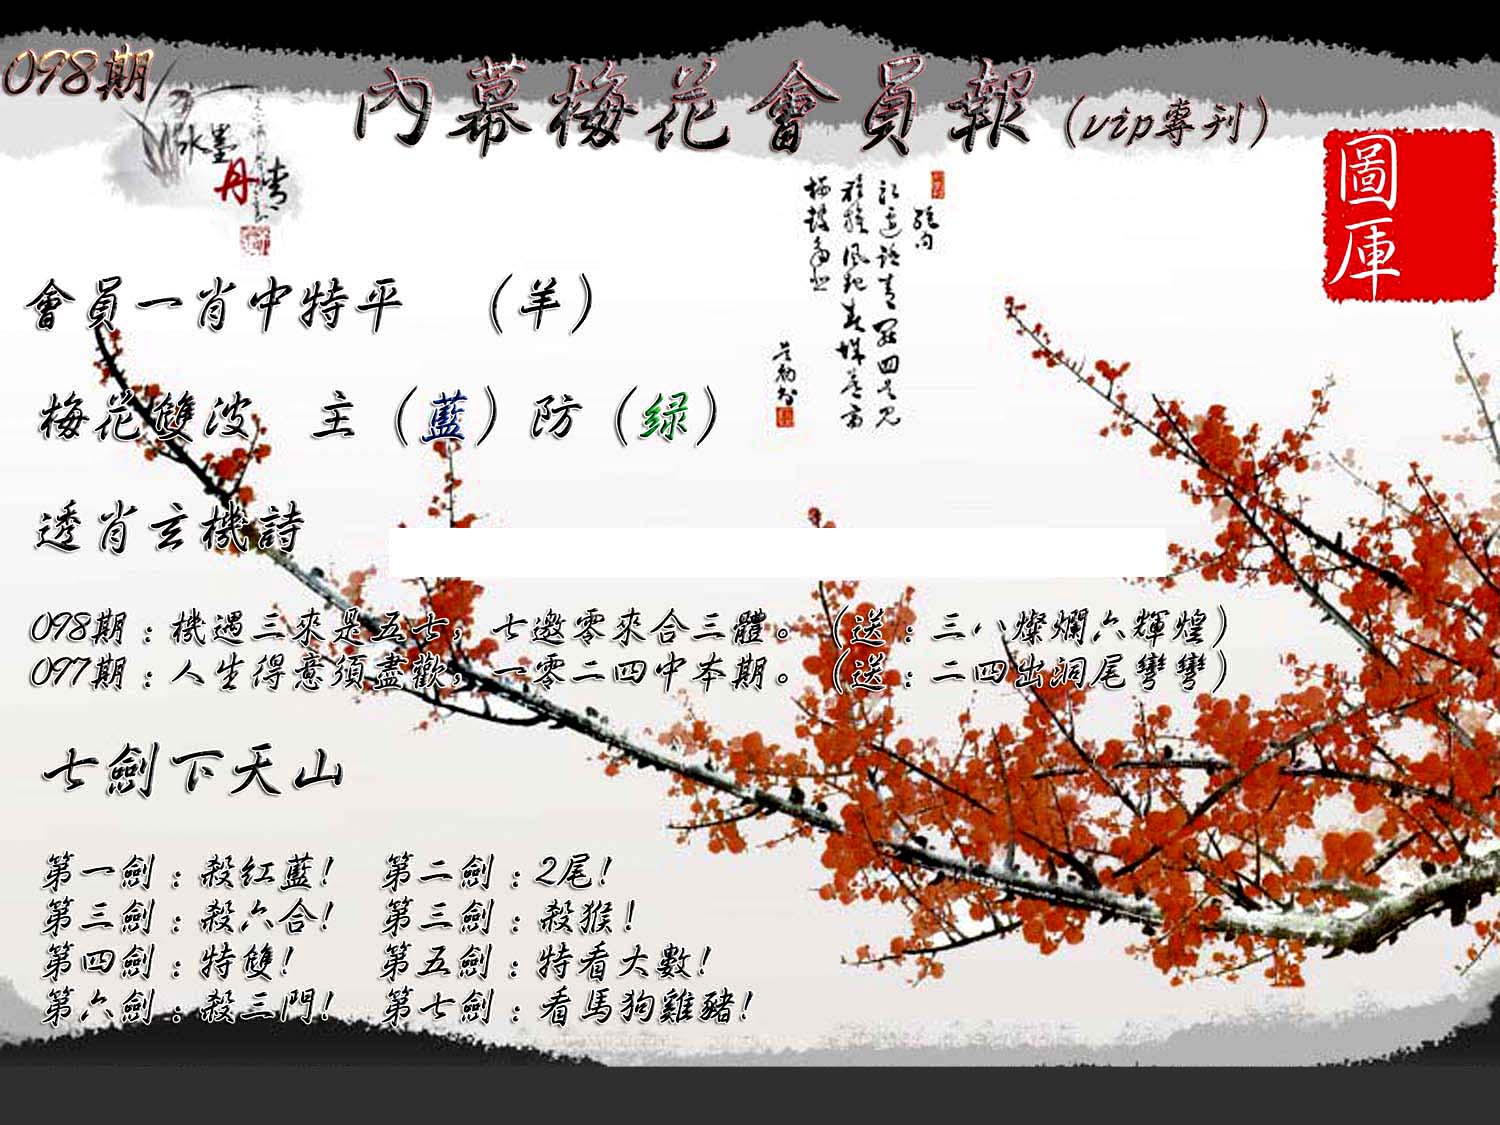 098期
內幕梅花會員報(vip專刊)
水墨
丹青
圖庫
會員一肖中特平 (羊)
梅花雙波 主(藍)防(绿)
透肖玄機詩
098期:機遇三來是五七,七邀零來合三體。(送:三八燦爛六輝煌)
097期:人生得意須盡歡,一零二四中本期。(送:二四出洞尾彎彎)
七劍下天山
第一劍:殺红藍! 第二劍:2尾!
第三劍:殺六合! 第三劍:殺猴!
第四劍:特雙! 第五劍:特看大數!
第六劍:殺三門! 第七劍:看馬狗雞豬!